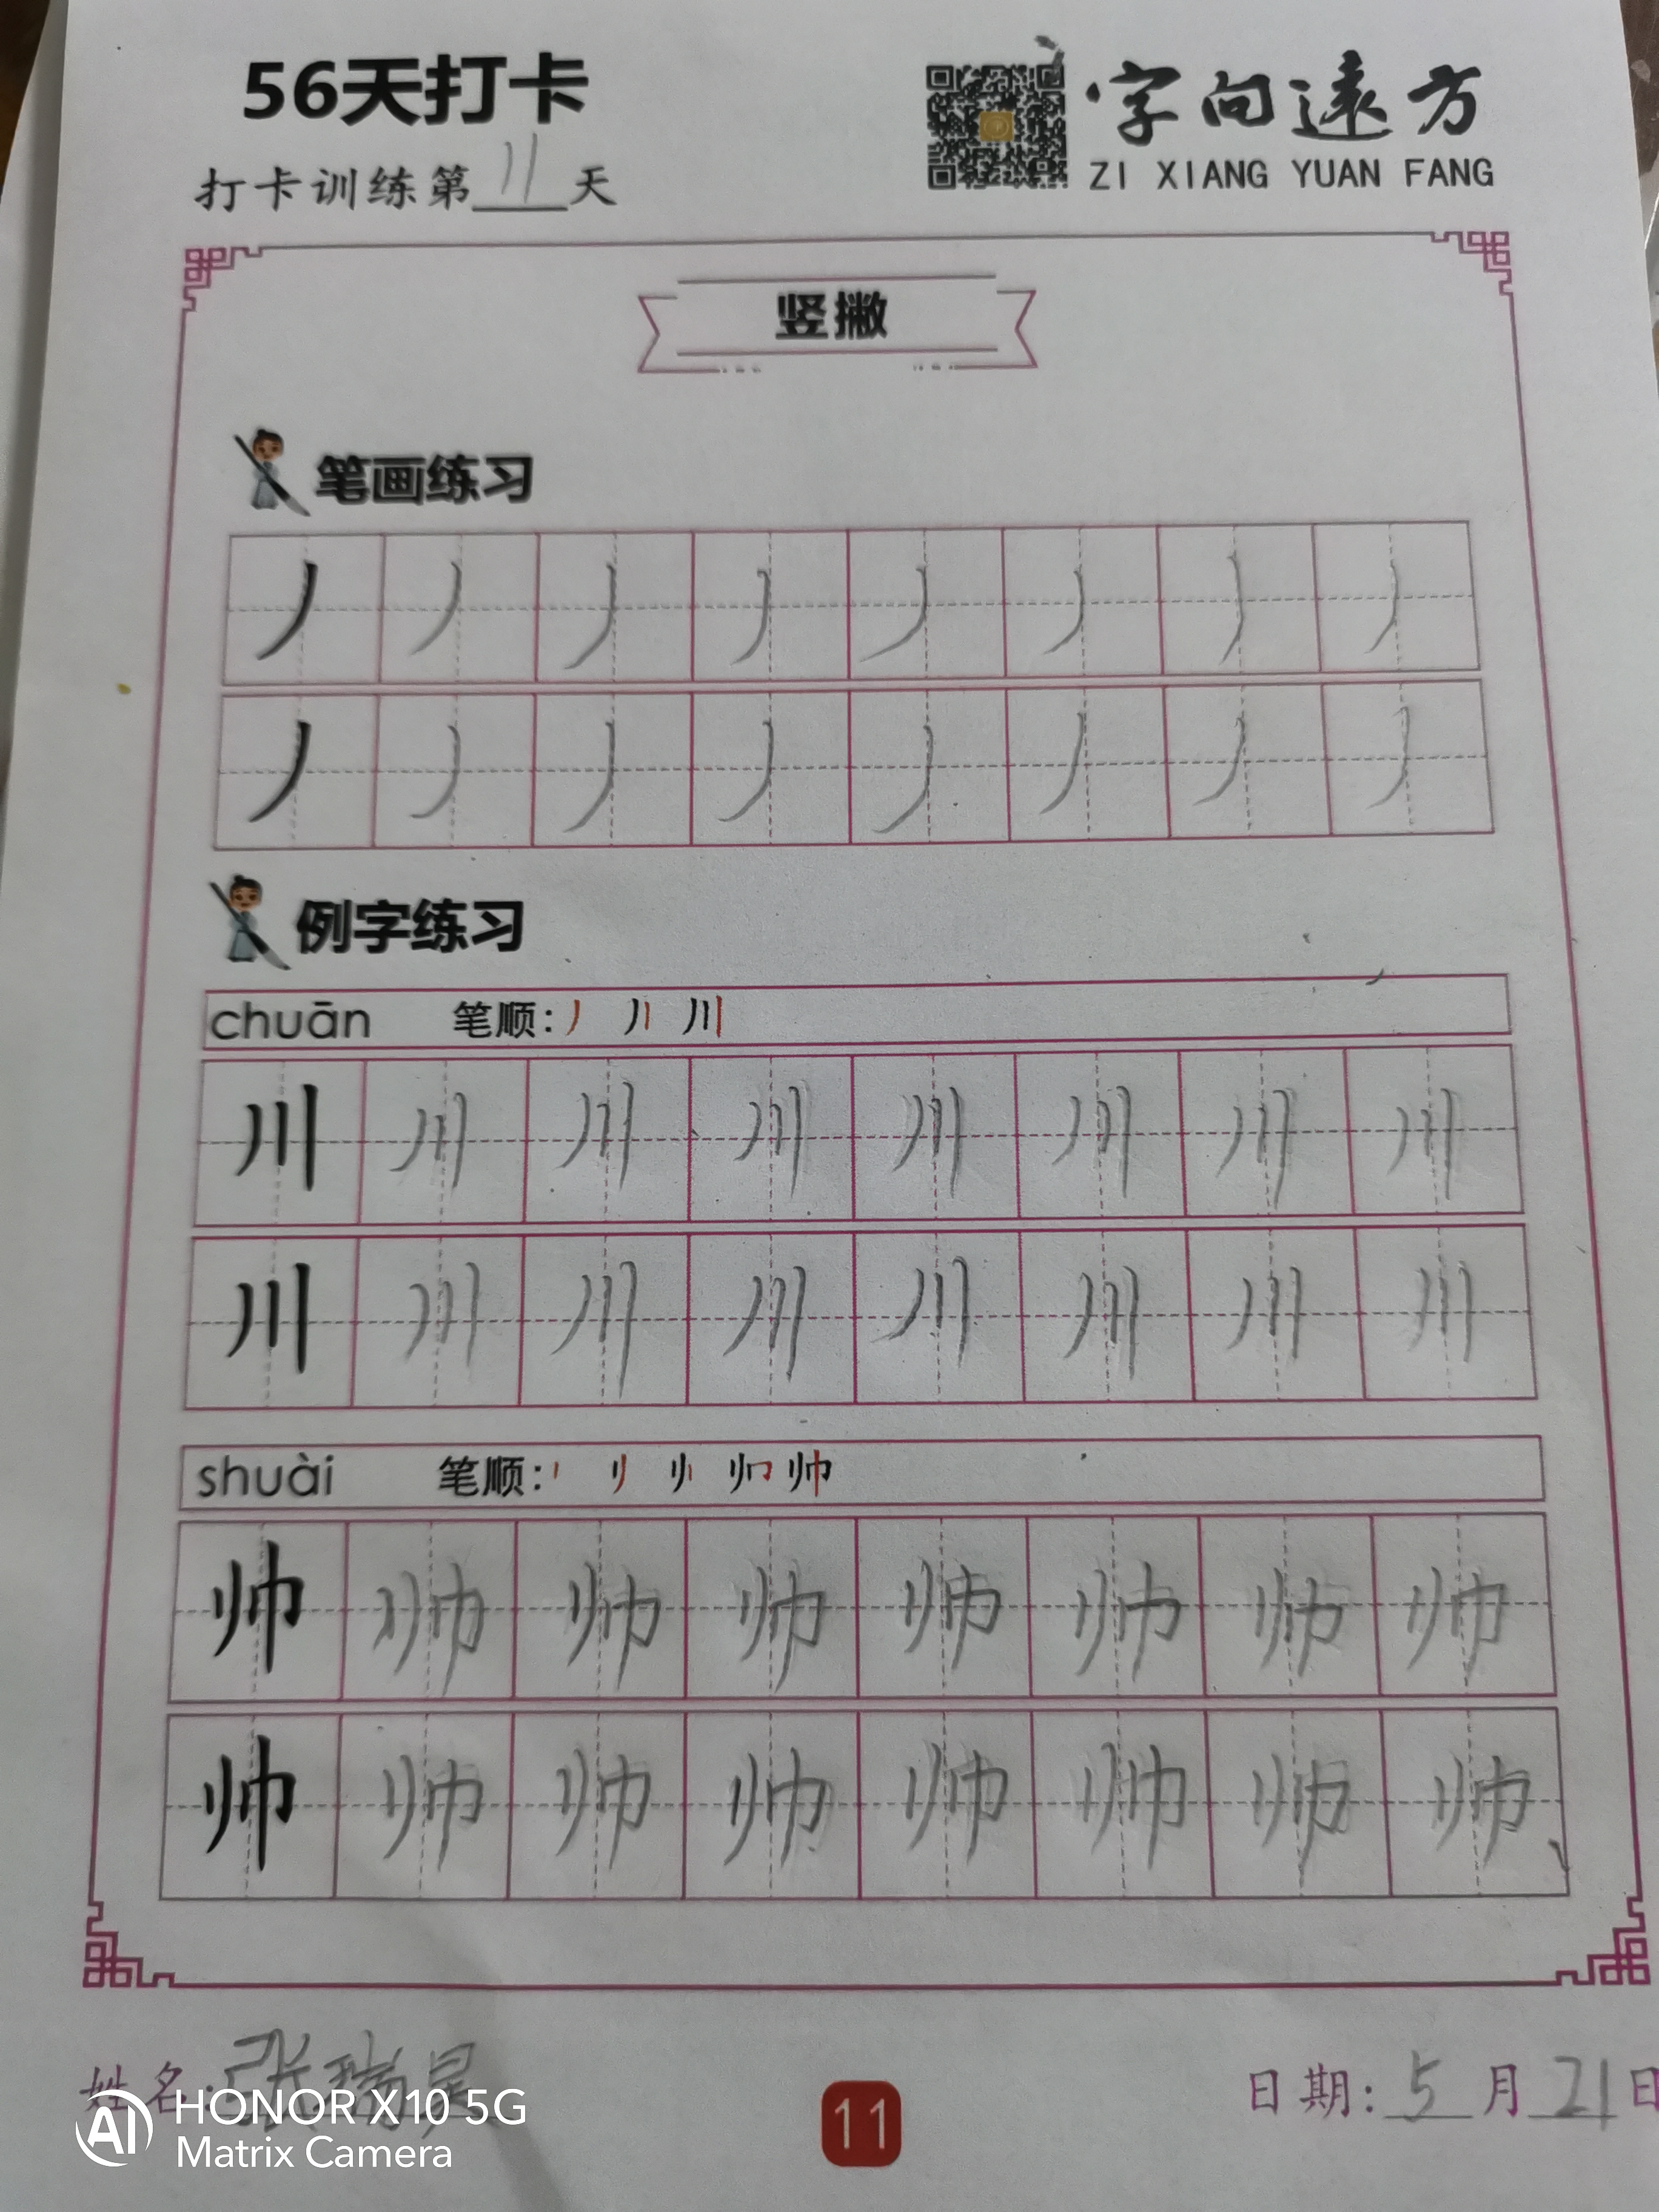 56天打卡
字向遠方
ZI XIANG YUAN FANG
打卡训练第11天
竖撇
笔画练习
丿 丿 丿 丿 丿 丿 丿 丿
丿 丿 丿 丿 丿 丿 丿 丿
例字练习
chuān 笔顺: 丿 丿丨 川
川 川 川 川 川 川 川 川
川 川 川 川 川 川 川 川
shuài 笔顺: 帅
帅 帅 帅 帅 帅 帅 帅 帅
帅 帅 帅 帅 帅 帅 帅 帅
姓名: 张瑞
11
日期: 5月21日
AI HONOR X10 5G
Matrix Camera